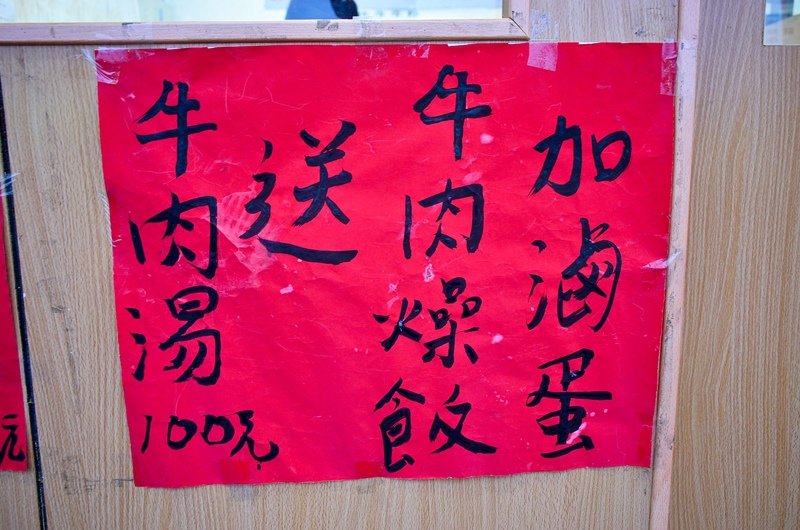 牛肉湯100元
送
牛肉燥飯
加滷蛋
元